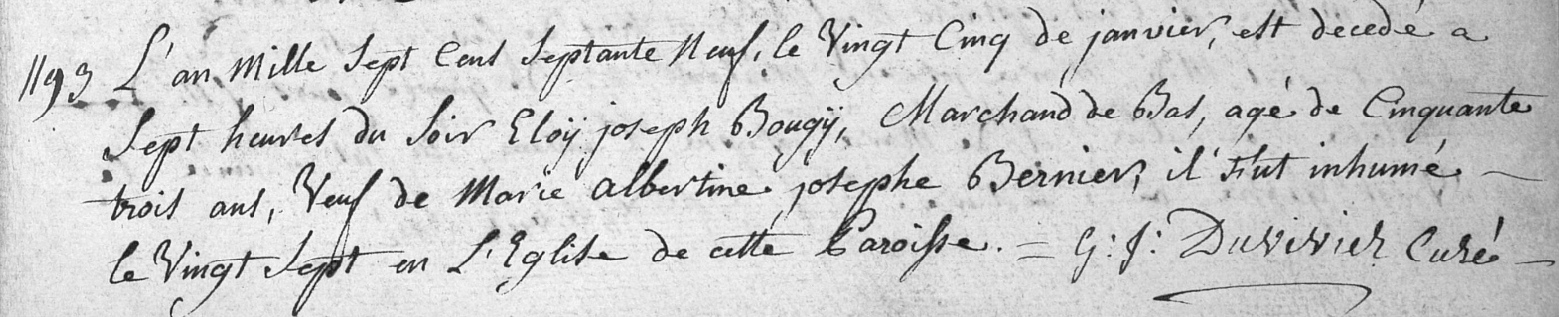 1193 L'an Mille Sept Cent Septante Neuf, le Vingt Cinq de janvier, est decedé a
Sept heures du Soir Eloÿ joseph Bougÿ, Marchand de Bas, agé de Cinquante
trois ans, Veuf de Marie albertine josephe Bernier, il Fut inhumé —
le Vingt Sept en L'Eglise de cette Paroisse. = G: J: Duvivier Curé —